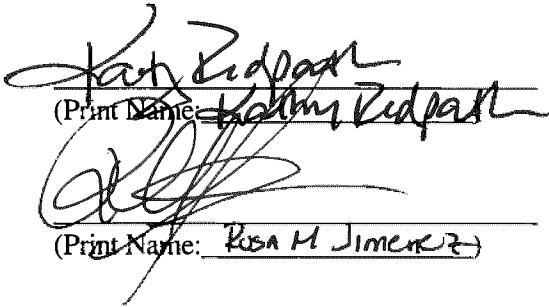 Kathy Redpath
(Print Name: Kathy Redpath)
(Print Name: Rosa M Jimenez)